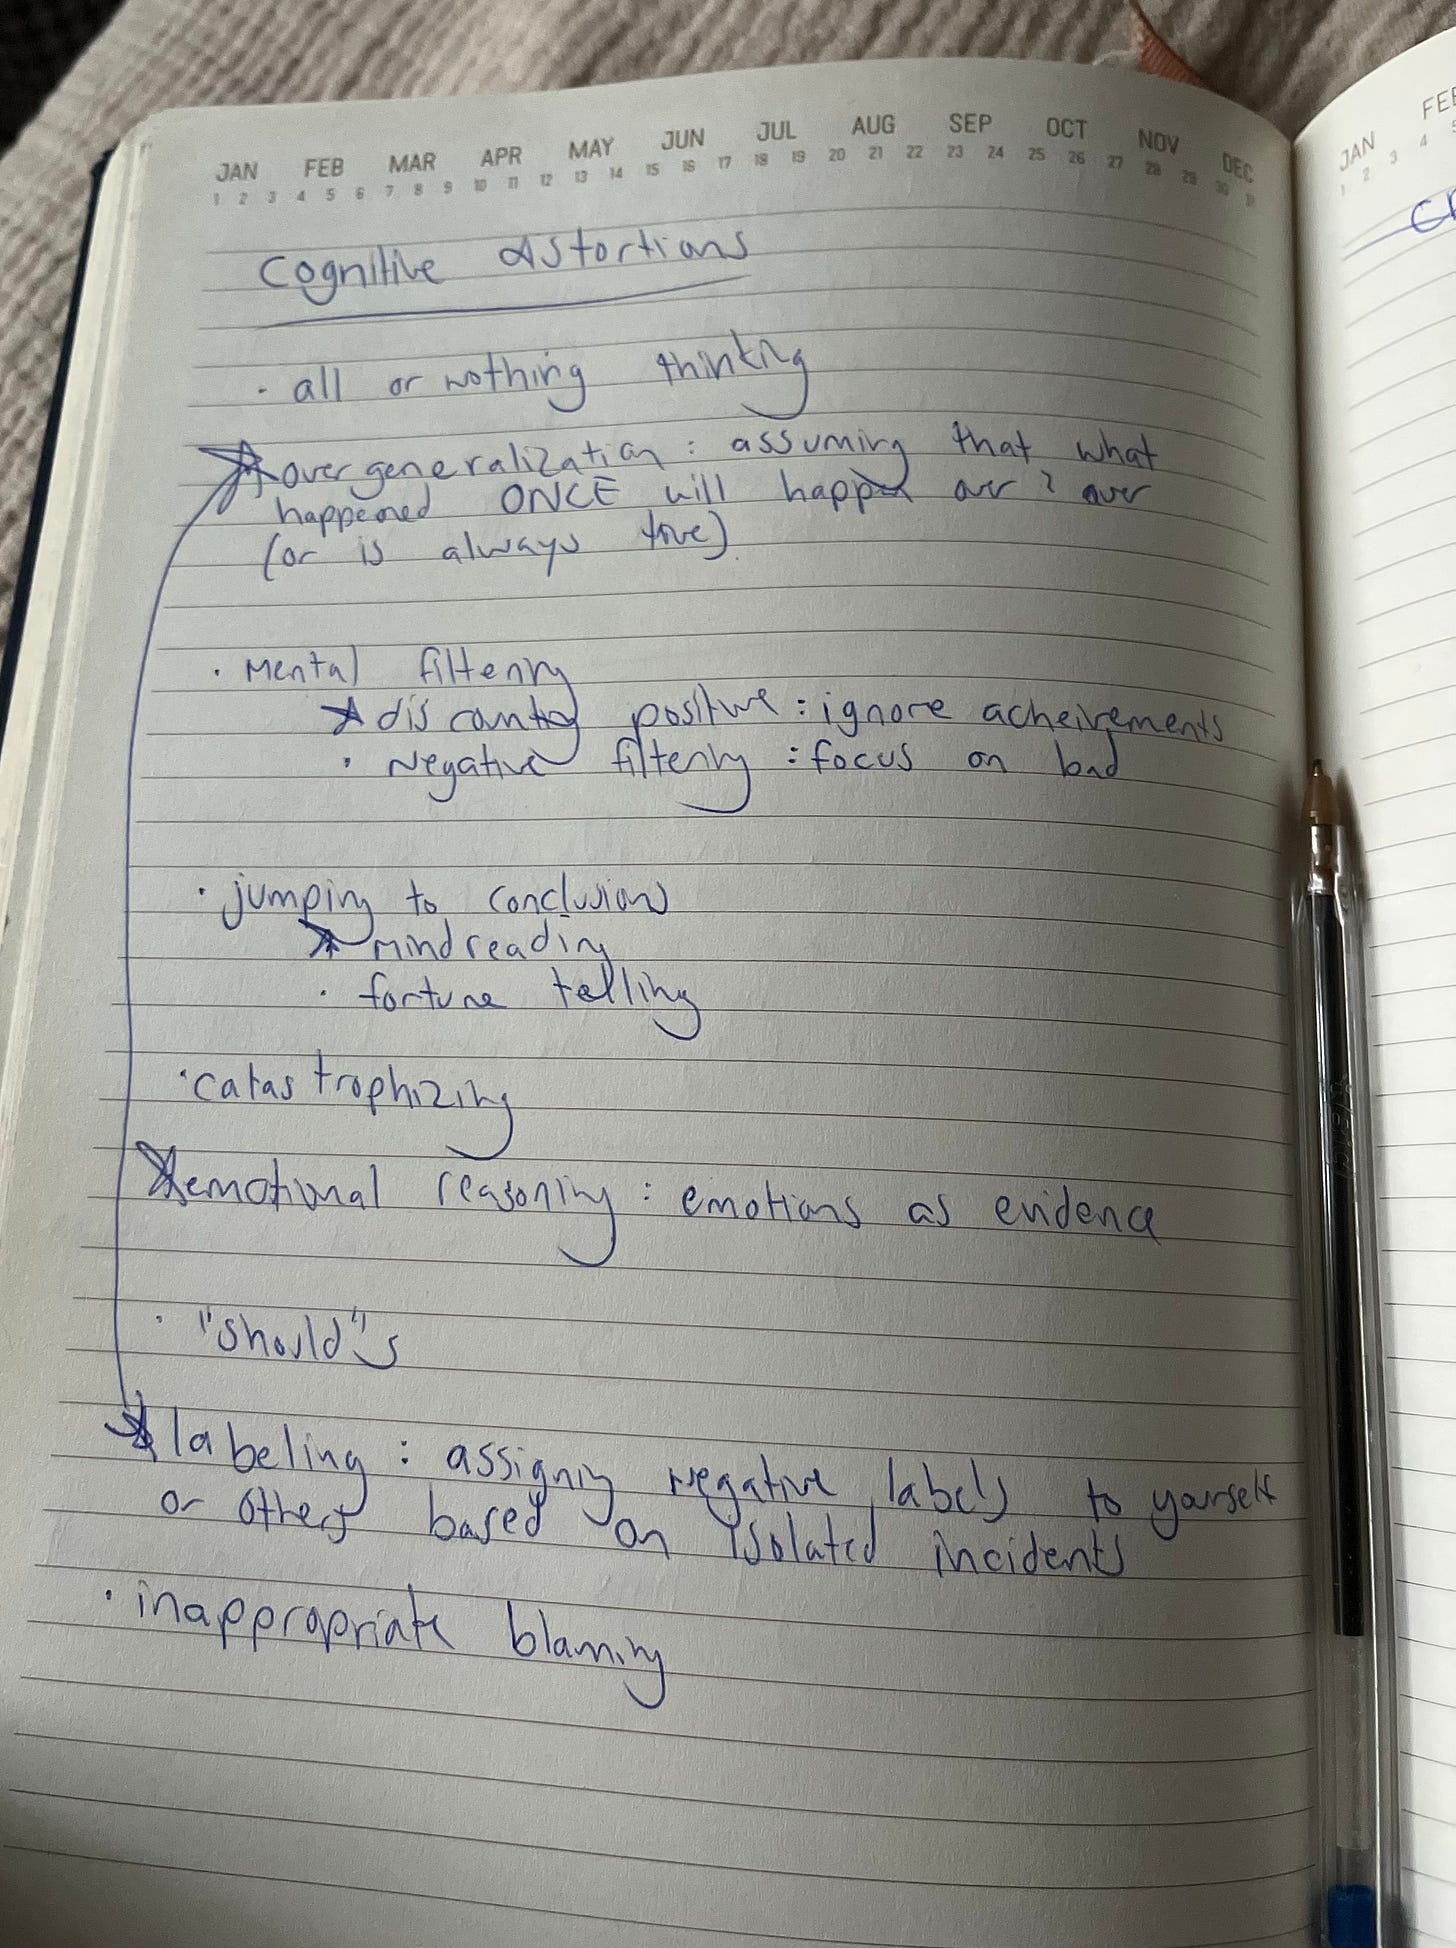 JAN FEB MAR APR MAY JUN JUL AUG SEP OCT NOV DEC
1 2 3 4 5 6 7 8 9 10 11 12 13 14 15 16 17 18 19 20 21 22 23 24 25 26 27 28 29 30 31
Cognitive distortions
· all or nothing thinking
overgeneralization : assuming that what
happened ONCE will happen over & over
(or is always true)
· Mental filtering
discounting positive : ignore acheivements
· Negative filtering : focus on bad
· jumping to conclusions
mind reading
· fortune telling
· catastrophizing
emotional reasoning : emotions as evidence
· "should"s
labeling : assigning negative labels to yourself
or others based on isolated incidents
· inappropriate blaming
JAN
1 2 3 4